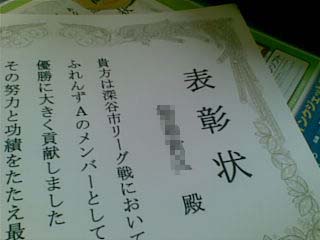 表彰状
殿
貴方は深谷市リーグ戦において
ふれんずAのメンバーとして
優勝に大きく貢献しました
その努力と功績をたたえ最